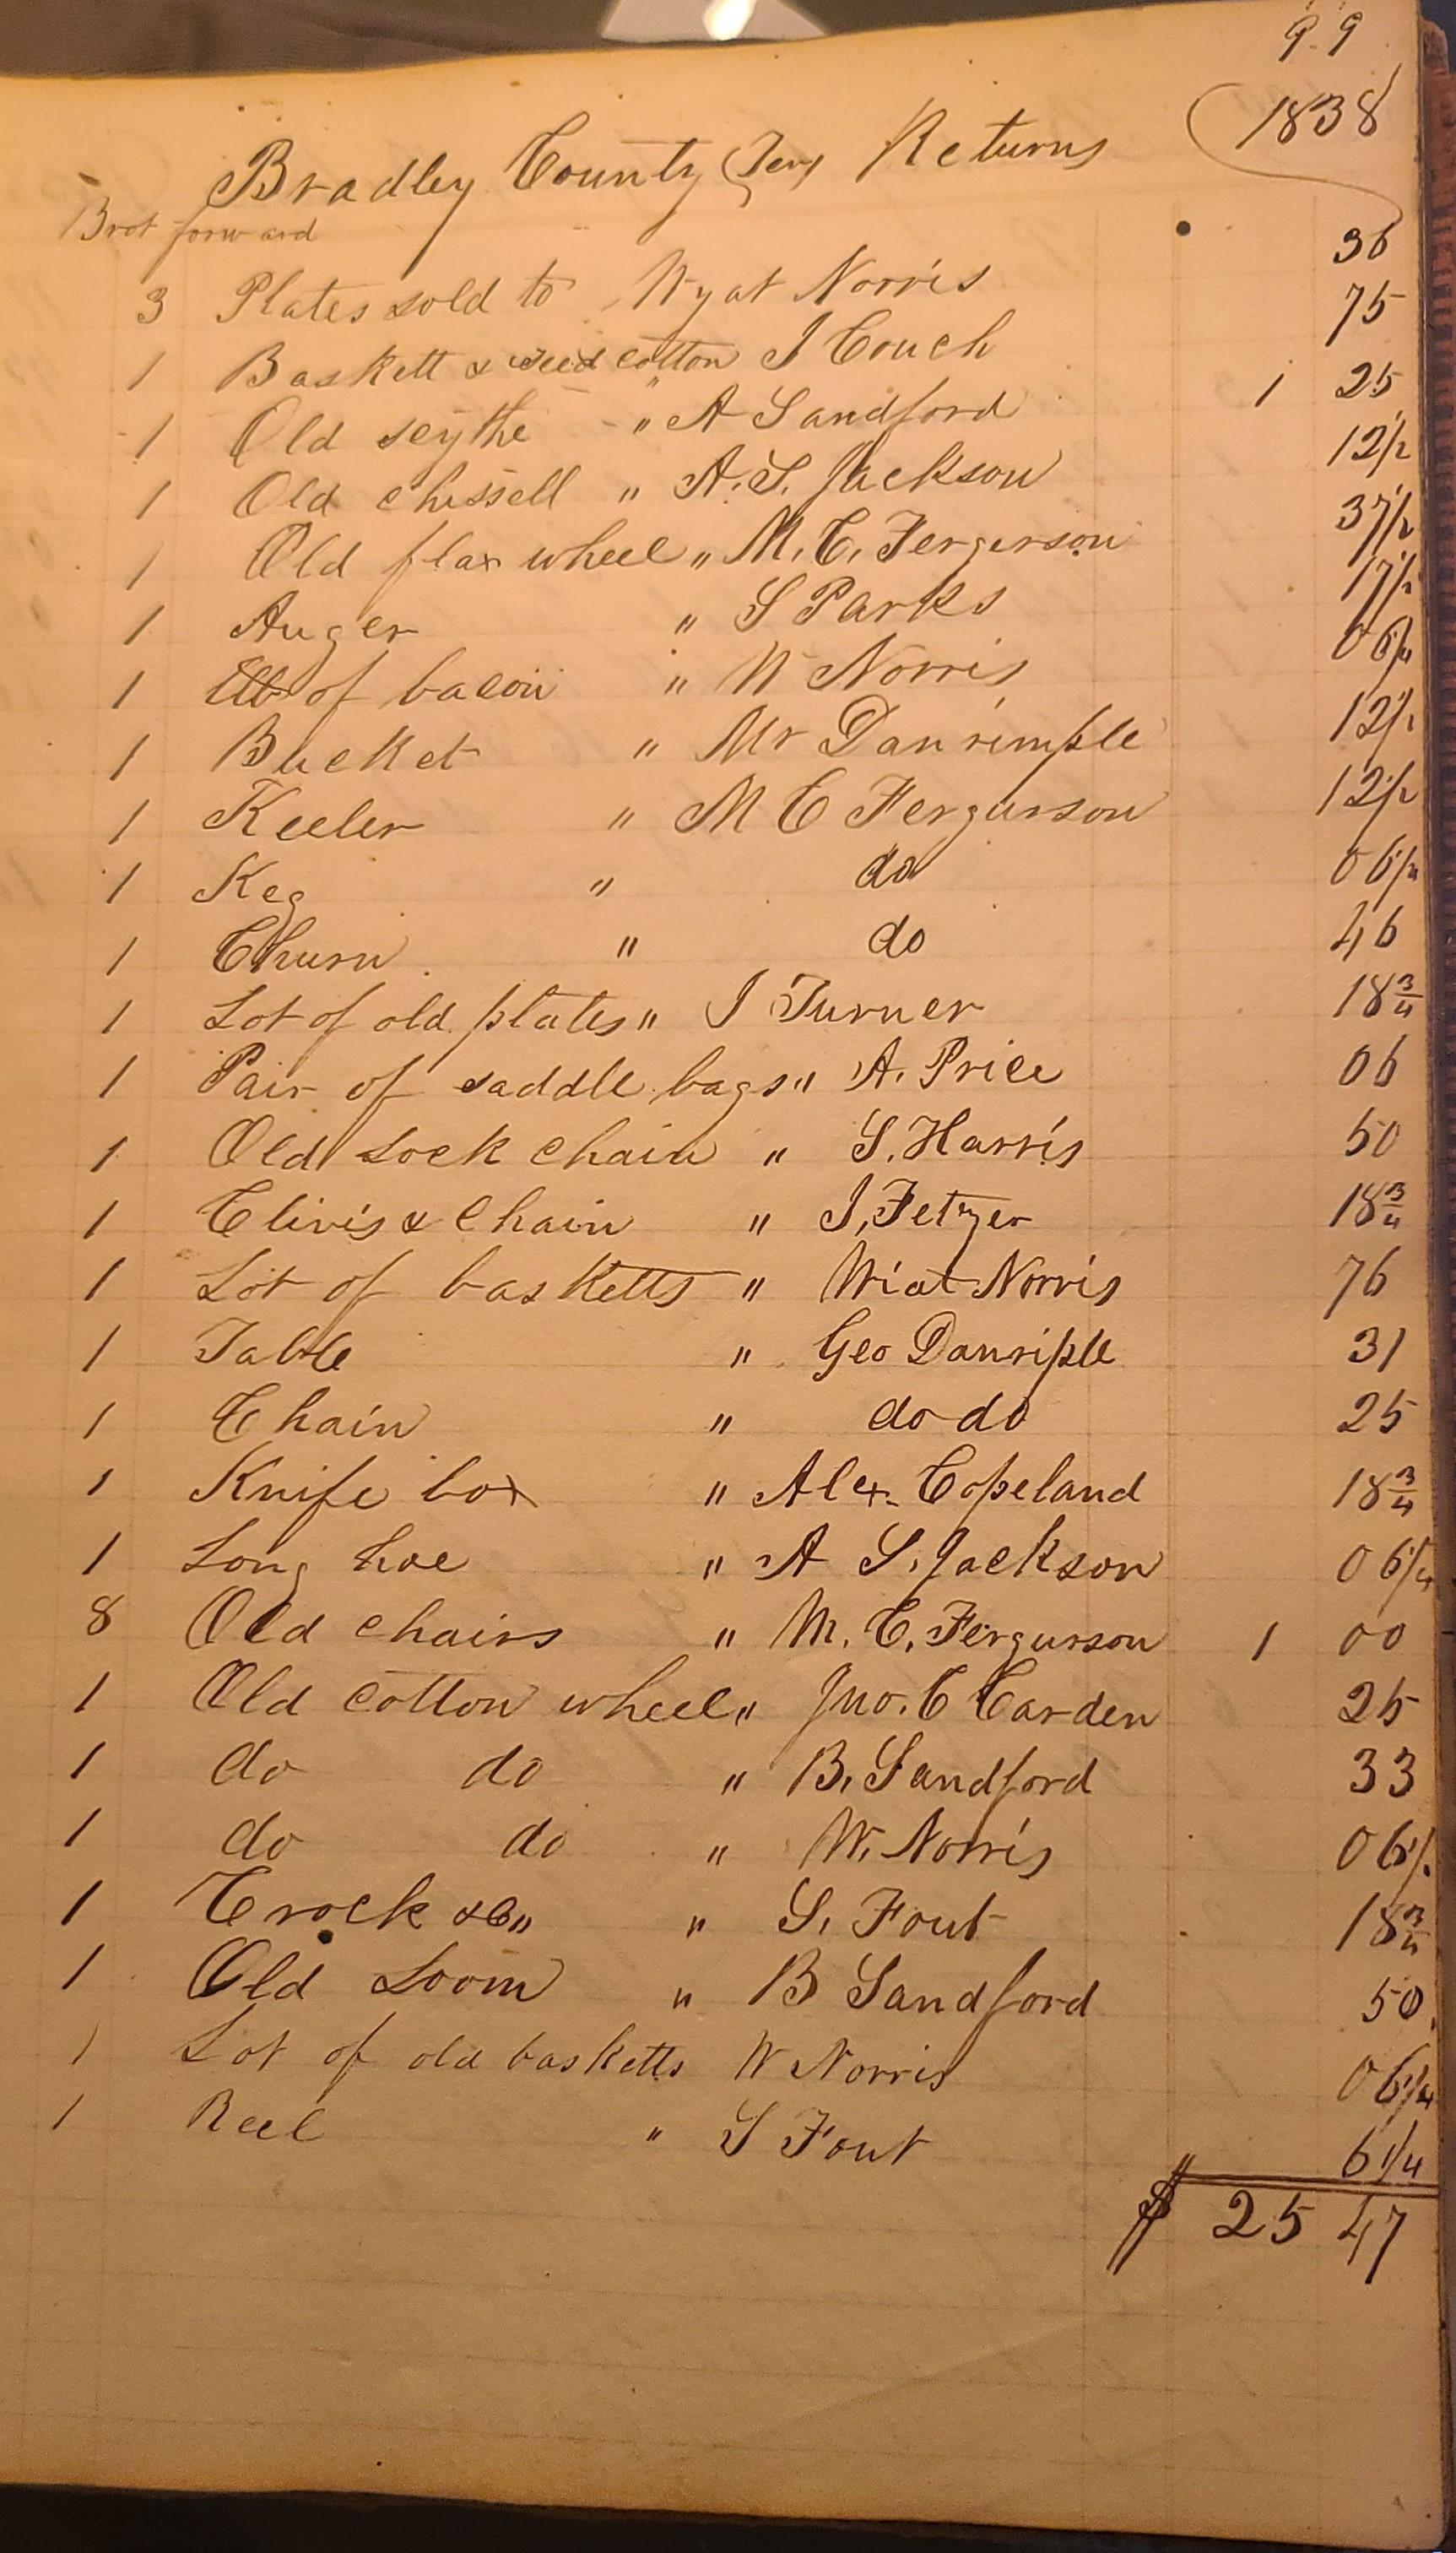 99
1838
Bradley County (Ten) Returns
Brot forward
3 Plates sold to Wyat Norris 36
1 Baskett & seed cotton J Couch 75
1 Old scythe " A Sandford 1 25
1 Old chissell " A. S. Jackson 12½
1 Old flax wheel " M. C. Fergerson 37½
1 Auger " S Parks 17½
1 lb of bacon " W Norris 06¼
1 Bucket " Mr Danrimple 12½
1 Keeler " M C Fergurson 12½
1 Keg " do 06¼
1 Churn " do 46
1 Lot of old plates " J Turner 18¾
1 Pair of saddle bags " A. Price 06
1 Old Lock chain " S. Harris 50
1 Clivis & Chain " J. Fetzer 18¾
1 Lot of basketts " Wiat Norris 76
1 Table " Geo Danriple 31
1 Chain " do do 25
1 Knife box " Alex. Copeland 18¾
1 Long hoe " A S. Jackson 06¼
8 Old chairs " M. C. Fergurson 1 00
1 Old cotton wheel " Jno. C Carden 25
1 do do " B. Sandford 33
1 do do " W. Norris 06¼
1 Crock &c " " S. Fout 18¾
1 Old Loom " B Sandford 50
1 Lot of old basketts W Norris 06¼
1 Reel " S Fout 6¼
$ 25 47